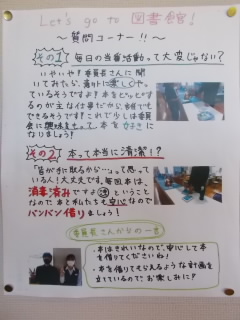 Let's go to 図書館!
〜質問コーナー!!〜
その1 毎日の当番活動って大変じゃない?
いやいや!委員長さんに聞
いてみたら、意外と楽し〇や
っているそうですよ?本をピッとす
るのが主な仕事だから、誰でも
できるそうです!これで少しは委員
会に興味をもって、本を好きに
なりましょう!
その2 本って本当に清潔!?
"皆が手に取るから…"って思って
いる人!大丈夫です。毎回本は、
消毒済みですよ ということ
なので本と私たちも安心なので
バンバン借りましょう!
委員長さんからの一言
・本はきれいなので、安心して本
を借りてくださいね!
・本を借りてもらえるような計画を
立てているので、お楽しみに?